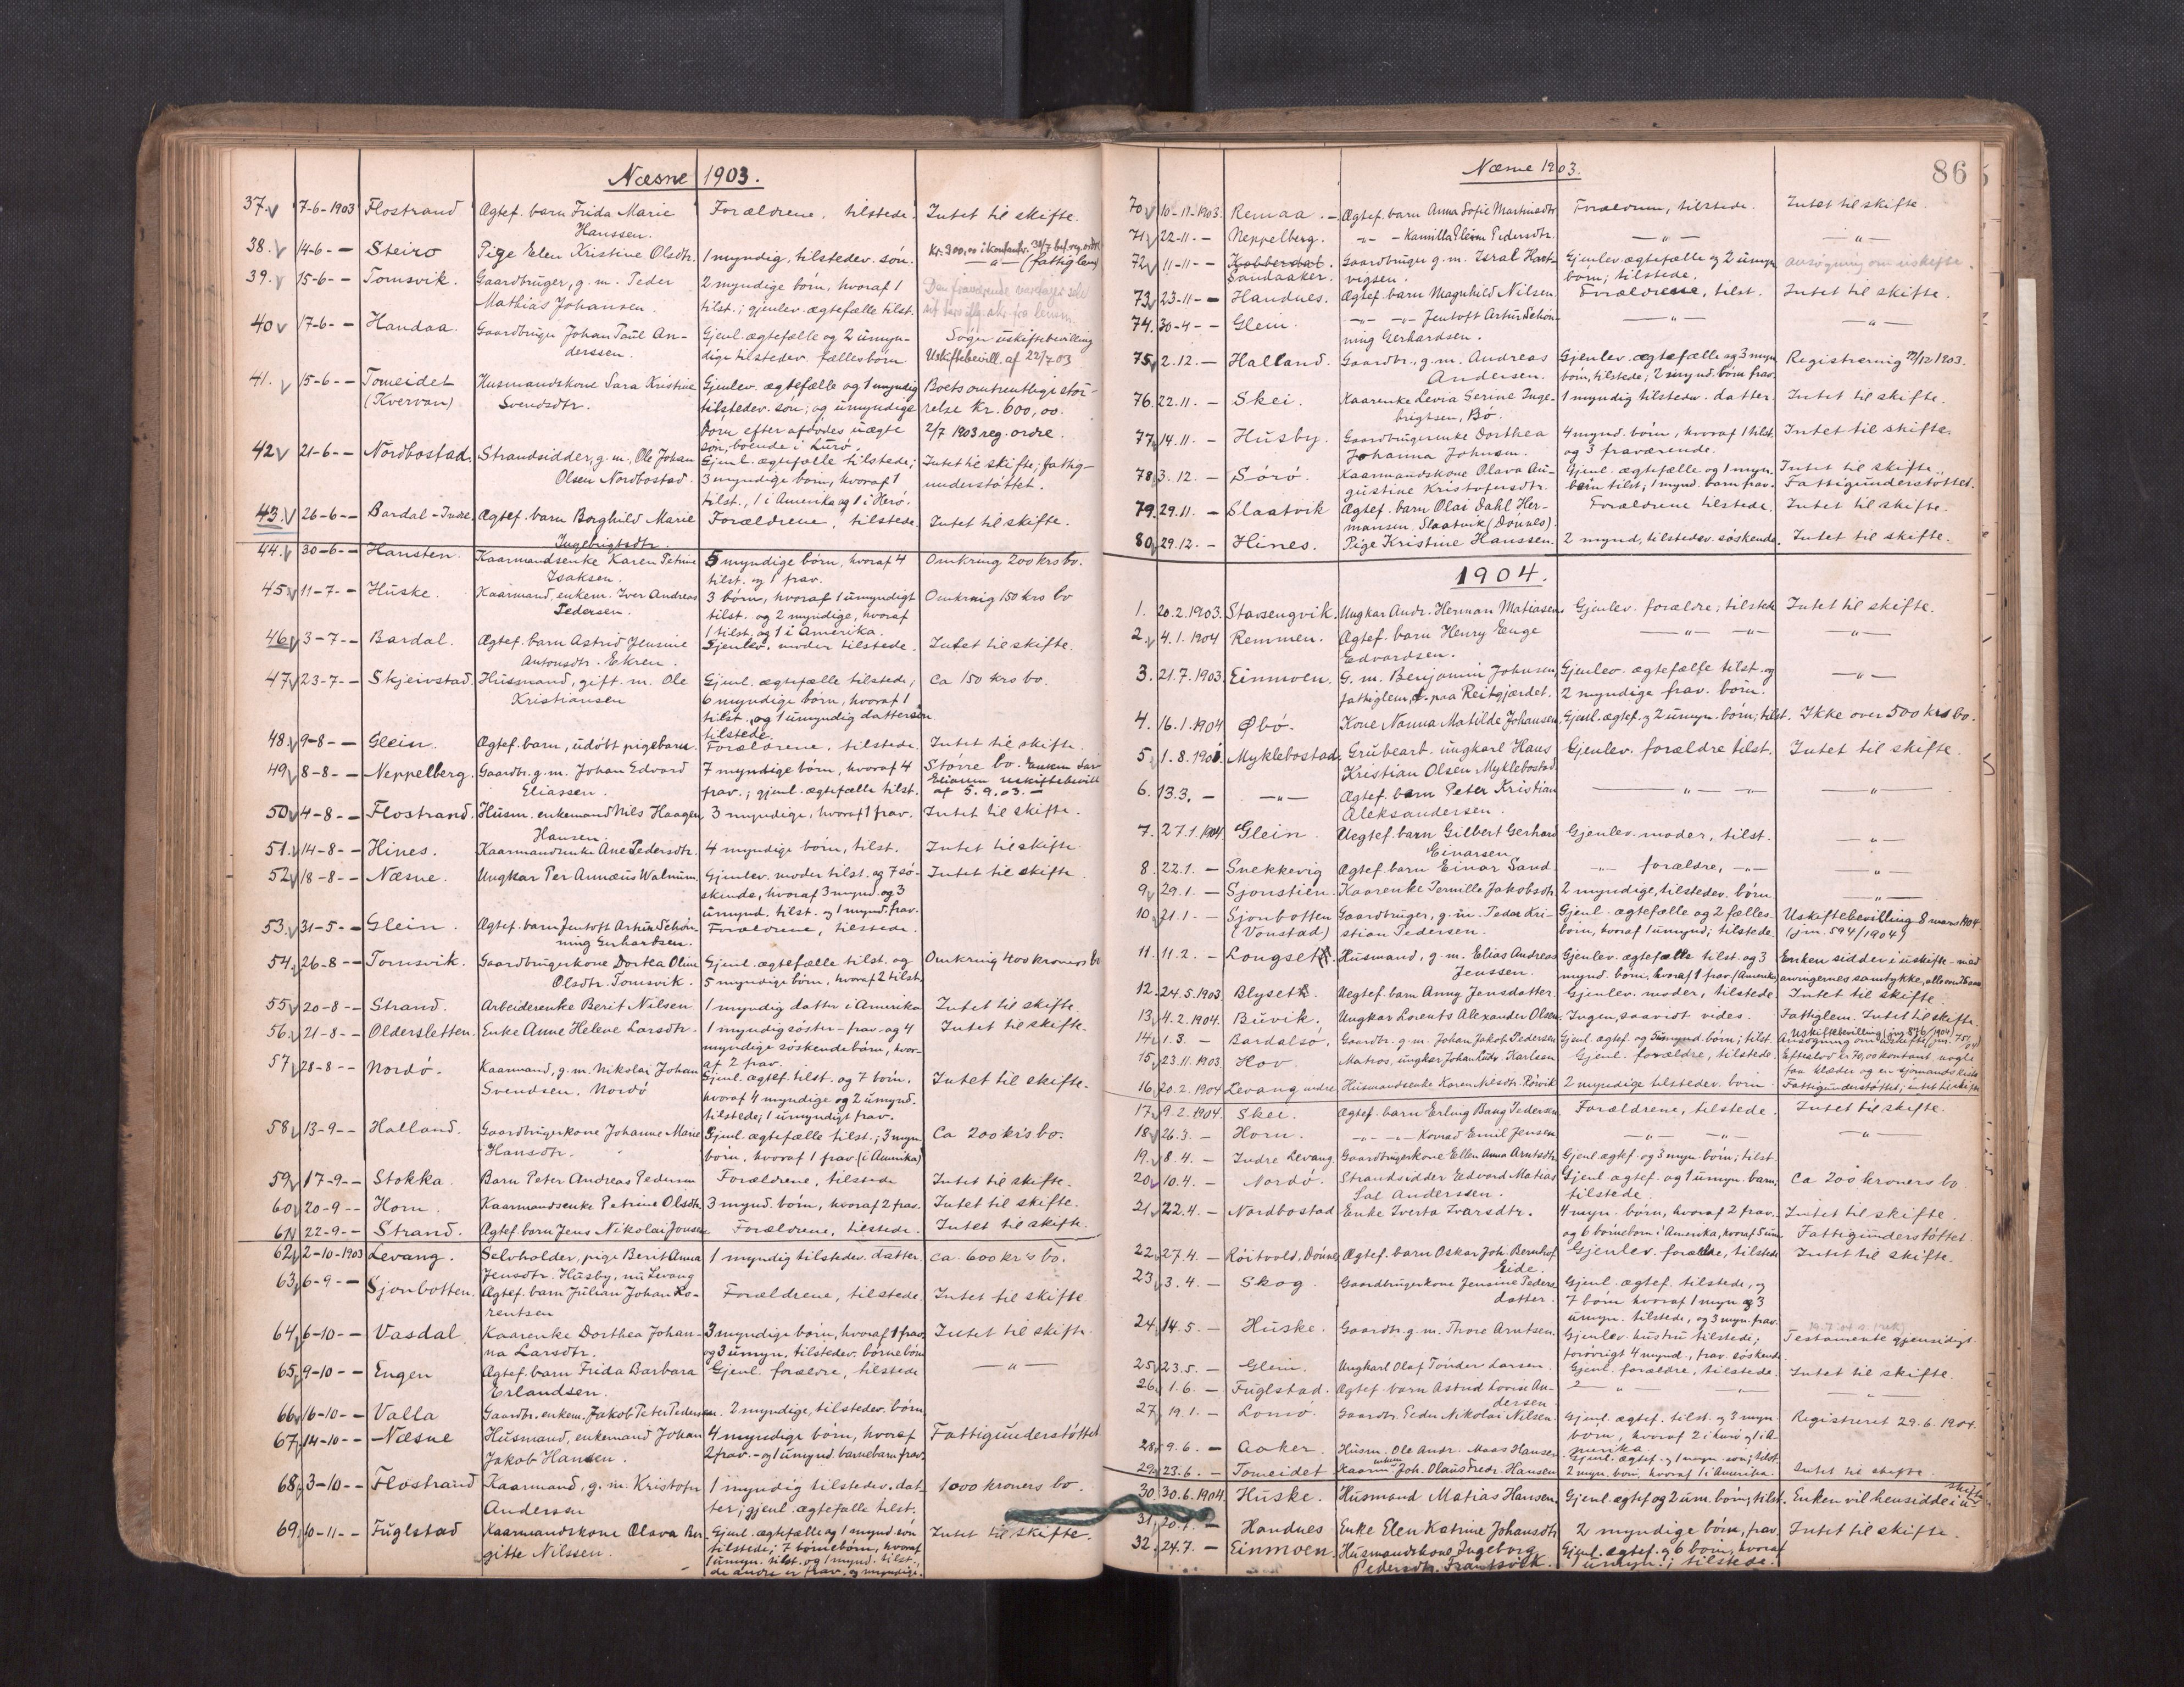 Næsne 1903.
37. 7-6-1903 Flostrand Ægtef. barn Frida Marie Hanssen. Forældrene, tilstede. Intet til skifte.
38. 14-6- — Steiro Pige Elen Kristine Olsdtr. 1 myndig, tilstedev. søn. Kr. 300,00 i kontanter. (fattiglem)
39. 15-6- — Tomsvik. Gaardbruger, g. m. Peder
Mathias Johansen. 2 myndige børn, hvoraf 1
tilst.; gjenlev. ægtefælle tilst.
40 17-6- — Handaa. Gaardbruger Johan Paul An-
derssen. Gjenl. ægtefælle og 2 umyn-
dige tilstedev. fællesbørn Søger uskiftebevilling
Uskiftebevill. af 22/7 03
41. 15-6- — Tomeidet
(Kvervan) Husmandskone Sara Kristine
Svendsdtr. Gjenlev. ægtefælle og 1 myndig
tilstedev. søn; og umyndige
børn efter afdødes uægte
søn, boende i Lurø. Boets omtrentlige stør-
relse Kr. 600,00.
2/7 1903 reg. ordre.
42 21-6- — Nordbostad. Strandsidder, g. m., Ole Johan
Olsen Nordbostad. Gjenl. ægtefælle tilstede;
3 myndige børn, hvoraf 1
tilst., 1 i Amerika og 1 i Herø. Intet til skifte; fattig-
understøttet.
43. 26-6- — Bardal-Indre. Ægtef. barn Borghild Marie
Ingebrigtsdtr. Forældrene, tilstede. Intet til skifte.
44. 30-6- — Hansten. Kaarmandsenke Karen Petrine
Isaksen. 5 myndige børn, hvoraf 4
tilst. og 1 frav. Omkring 200 krs bo.
45 11-7- — Huske. Kaarmand, enkem. Iver Andreas
Pedersen. 3 børn, hvoraf 1 umyndigt
tilst. og 2 myndige, hvoraf
1 tilst. og 1 i Amerika. Omkring 150 krs bo
46 3-7- — Bardal. Ægtef. barn Astrid Jensine
Antonsdtr. Ekren. Gjenlev. moder tilstede. Intet til skifte.
47 23-7- — Skjeivstad. Husmand, gift. m. Ole
Kristiansen Gjenl. ægtefælle tilstede;
6 myndige børn, hvoraf 1
tilst. og 1 umyndig dattersøn
tilstede. Ca 150 krs bo.
48. 9-8- — Glein. Ægtef. barn, udøbt pigebarn. Forældrene, tilstede. Intet til skifte.
49 8-8- — Neppelberg. Gaardbr. g. m. Johan Edvard
Eliassen. 7 myndige børn, hvoraf 4
frav.; gjenl. ægtefælle tilst. Større bo. Enken
uskiftebevill
af 5.9.03. —
50 4-8- — Flostrand. Husm. enkemand Nils Haagen
Hansen. 3 myndige, hvoraf 1 frav. Intet til skifte.
51. 14-8- — Hines. Kaarmandsenke Ane Pedersdtr. 4 myndige børn, tilst. Intet til skifte
52 18-8- — Næsne. Ungkar Per Annæus Walnum. Gjenlev. moder tilst. og 7 sø-
skende, hvoraf 3 mynd. og 3
umynd. tilst. og 1 mynd. frav. Intet til skifte.
53. 31-5- — Glein. Ægtef. barn Jentoft Artur Schøn-
ning Gerhardsen. Forældrene, tilstede.
54. 26-8- — Tomsvik. Gaardbrugerkone Dortea Oline
Olsdtr. Tomsvik. Gjenl. ægtefælle tilst. og
5 myndige børn, hvoraf 2 tilst. Omkring 400 kroners bo
55 20-8- — Strand. Arbeiderenke Berit Nilsen 1 myndig datter i Amerika Intet til skifte.
56. 21-8- — Oldersletten. Enke Anne Helene Larsdtr. 1 myndig søster frav. og 4
myndige søskendebørn, hvor-
af 2 frav. Intet til skifte.
57 28-8- — Nordø. Kaarmand, g. m. Nikolai Johan
Svendsen. Nordø Gjenl. ægtef. tilst. og 7 børn.
hvoraf 4 myndige og 2 umynd.
tilstede; 1 umyndigt frav. Intet til skifte.
58 13-9- — Halland. Gaardbrugerkone Johanne Marie
Hansdtr. Gjenl. ægtefælle tilst.; 3 myn.
børn, hvoraf 1 frav. (i Amerika) Ca 200 kr's bo.
59 17-9- — Stokka. Barn Peter Andreas Pedersen Forældrene, tilstede Intet til skifte.
60 20-9 — Horn. Kaarmandsenke Petrine Olsdtr. 3 mynd. børn, hvoraf 2 frav. Intet til skifte.
61 22-9- — Strand. Ægtef. barn Jens Nikolai Jonsen Forældrene, tilstede. Intet til skifte
62 2-10-1903 Levang. Selvholder, pige Berit Anna
Jensdtr. Husby, nu Levang 1 myndig tilstedev. datter. Ca. 600 kr's bo.
63 6-9- — Sjonbotten. Ægtef. barn Julian Johan Lo-
rentsen Forældrene, tilstede. Intet til skifte
64 6-10- — Vasdal Kaarenke Dorthea Johan-
na Larsdtr. 3 myndige børn, hvoraf 1 frav.
og 3 umyn. tilstedev. børnebørn Intet til skifte.
65 9-10- — Engen Ægtef. barn Frida Barbara
Erlandsen. Gjenl. forældre, tilstede — " —
66 16-10- — Valla Gaardbr. enkem. Jakob Peter Pedersen. 2 myndige, tilstedev. børn
67 14-10- — Næsne Husmand, enkemand Johan
Jakob Hansen. 4 myndige børn, hvoraf
2 frav. og 1 umynd. barnebarn frav. Fattigunderstøttet
68 3-10- — Flostrand Kaarmand, g. m. Kristofer
Andersen 1 myndig tilstedev. dat-
ter; gjenl. ægtefælle tilst. 1000 kroners bo.
69 10-11- — Fuglstad Kaarmandskone Olava Ber-
gitte Nilssen. Gjenl. ægtefælle og 1 mynd. søn
tilstede; 7 børnebørn, hvoraf
1 umyn. tilst. og 1 mynd. tilst.,
de andre er frav. og myndige. Intet til skifte.
Næsne 1903.
86
70 10-11-1903. Remaa. Ægtef. barn Anna Sofie Martinsdtr. Forældrene, tilstede. Intet til skifte.
71 22-11- — Neppelberg. — " — Kamilla Pedersdtr. — " — — " —
72 11-11- — Kobberdal.
Sandaaker. Gaardbruger g. m. Isral Hart-
vigsen. Gjenlev. ægtefælle og 2 umyn.
børn; tilstede. ansøgning om uskifte.
73 23-11- — Handnes. Ægtef. barn Magnhild Nilsen. Forældrene, tilst. Intet til skifte.
74. 30-4- — Glein. — " — Jentoft Artur Schøn-
ning Gerhardsen. — " — — " —
75 2.12. — Halland. Gaardbr., g. m. Andreas
Andersen. Gjenlev. ægtefælle og 3 myn.
børn, tilstede; 2 mynd. børn frav. Registrering 1903.
76 22.11. — Skei. Kaarenke Levia Serine Inge-
brigtsen, Bø. 1 myndig tilstedev. datter. Intet til skifte.
77 14.11. — Husby. Gaardbrugerenke Dorthea
Johanna Johnsen. 4 mynd. børn, hvoraf 1 tilst.
og 3 fraværende. Intet til skifte.
78 3.12. — Sørø. Kaarmandskone Olava Au-
gustine Kristofersdtr. Gjenl. ægtefælle og 1 myn.
barn tilst; 1 mynd. barn frav. Intet til skifte.
Fattigunderstøttet.
79. 29.11. — Slaatvik Ægtef. barn Olai Dahl Her-
mansen, Slaatvik (Dønnes). Forældrene tilstede. Intet til skifte.
80 29.12. — Hines. Pige Kristine Hanssen. 2 mynd, tilstedev. søskende. Intet til skifte.
1904.
1. 20.2.1903. Stavsengvik. Ungkar Andr. Herman Matiasen. Gjenlev. forældre; tilstede Intet til skifte.
2. 4.1.1904 Remmen. Ægtef. barn Henry Enge
Edvardsen. — " — — " — — " —
3. 21.7.1903. Einmoen. G. m. Benjamin Johnsen,
fattiglem, paa Reitgjærdet. Gjenlev. ægtefælle tilst. og
2 myndige frav. børn. — " —
4. 16.1.1904 Øbø. Kone Nanna Matilde Johansen. Gjenl. ægtef. og 2 umyn. børn; tilst. Ikke over 500 krs bo.
5 1.8.1901. Myklebostad. Grubearb. ungkarl Hans
Kristian Olsen Myklebostad. Gjenlev. forældre tilst. Intet til skifte.
6. 13.3. — — " — Ægtef. barn Peter Kristian
Aleksandersen. — " — — " — — " —
7. 27.1.1904 Glein. Uegtef. barn Gilbert Gerhard
Einarsen. Gjenlev. moder, tilst. — " —
8. 22.1. — Snekkevig Ægtef. barn Einar Sand. — " — forældre, — " — — " —
9 29.1. — Sjonstien. Kaarenke Pernille Jakobsdtr. 2 myndige, tilstedev. børn — " —
10 21.1. — Sjonbotten
(Vonstad) Gaardbruger, g. m. Peder Kri-
stian Pedersen. Gjenl. ægtefælle og 2 fælles-
børn, hvoraf 1 umynd; tilstede. Uskiftebevilling 8 mars 1904.
(jnr. 594/1904)
11. 11.2. — Longset. Husmand, g. m. Elias Andreas
Jenssen. Gjenlev. ægtefælle tilst. og 3
mynd. børn, hvoraf 1 frav. (Amerika) Enken sidder i uskifte med
arvingernes samtykke, alle
12. 24.5.1903 Blyset. Uegtef. barn Anny Jensdatter. Gjenlev. moder, tilstede Intet til skifte.
13. 4.2.1904. Buvik. Ungkar Lorents Alexander Olsen. Ingen, saavidt vides. Fattiglem. Intet til skifte.
14 1.3. — Bardalsø. Gaardbr. g. m. Johan Jakob Pedersen Gjenl. ægtef. og 5 umynd. børn; tilst. Uskiftebevilling (jnr. 876/1904)
Ansøgning om uskifte
15 23.11.1903 Hov. Matros, ungkar Johan Karlsen Gjenl. forældre, tilstede. Efterlod kr 70,00 kontant, nogle
faa klæder og en sjømandskiste
16. 20.2.1904 Levang nedre Husmandsenke Karen Nilsdtr. Røsvik 2 myndige tilstedev. børn. Fattigunderstøttet; intet til skifte
17 9.2.1904. Skei. Ægtef. barn Erling Bang Pedersen Forældrene, tilstede. Intet til skifte.
18 26.3. — Horn. — " — Konrad Emil Jensen — " — — " — — " —
19. 8.4. — Indre Levang Gaardbrugerkone Ellen Anna Arntsdtr. Gjenl. ægtef. og 3 myn. børn; tilst.
20 10.4. — Nordø. Strandsidder Edvard Matias
Sal Anderssen. Gjenl. ægtef. og 1 umyn. barn.
tilstede. Ca 200 kroners bo
21 22.4. — Nordbostad Enke Iverta Ivarsdtr. 4 myn. børn, hvoraf 2 frav.
og 6 børnebørn i Amerika, hvoraf 5 um. Intet til skifte.
Fattigunderstøttet.
22 27.4. — Røitvold, Dønnes Ægtef. barn Oskar Joh. Bernhof
Eide. Gjenlev. forældre, tilstede Intet til skifte.
23 3.4. — Skog. Gaardbrugerkone Jensine Peders-
datter. Gjenl. ægtef. tilstede, og
7 børn hvoraf 1 myn og 3
umyn. tilstede, og 3 myn. frav.
24 14.5. — Huske. Gaardbr. g. m. Thore Arntsen. Gjenlev. hustru tilstede;
forøvrigt 4 mynd., frav. søskende. Testamente gjensidigt.
25 23.5. — Glein. Ungkarl Olaf Tønder Larsen. Gjenl. forældre, tilstede. Intet til skifte.
26. 1.6. — Fuglstad. Ægtef. barn Astrid Lovise An-
dersen — " — — " — — " —
27 19.1. — Lomø. Gaardbr. Peder Nikolai Nilsen. Gjenl. ægtef. tilst. og 3 myn.
børn, hvoraf 2 i Lurø og 1 i A-
merika. Registreret 29.6.1904.
28 9.6. — Aaker. Husm. Ole Andr. Moas Hansen Gjenl. ægtef. og 1 myn. søn; tilst.
29 23.6. — Tomeidet Kaarm. enkem. Joh. Olaus Fredr. Hansen 2 myn. børn, hvoraf 1 i Amerika. Intet til skifte.
30 30.6.1904. Huske. Husmand Matias Hansen. Gjenl. ægtef og 2 um. børn; tilst. Enken vil hensidde i u-
skifte
31 20.7. — Handnes Enke Elen Katrine Johansdtr. 2 myndige børn, frav. Intet til skifte.
32. 24.7. — Einmoen. Husmandskone Ingeborg
Pedersdtr. Frantsvik. Gjenl. ægtef. og 6 børn, hvoraf
1 umyn.; tilstede.